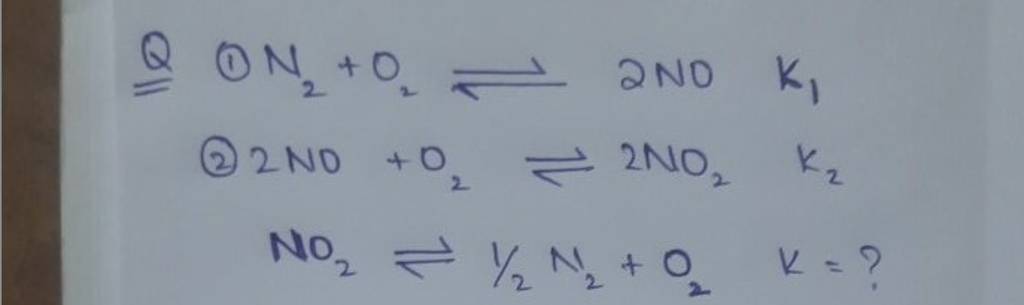 Q ① N₂ + O₂ ⇌ 2NO K₁
② 2NO + O₂ ⇌ 2NO₂ K₂
NO₂ ⇌ 1/2 N₂ + O₂ K = ?